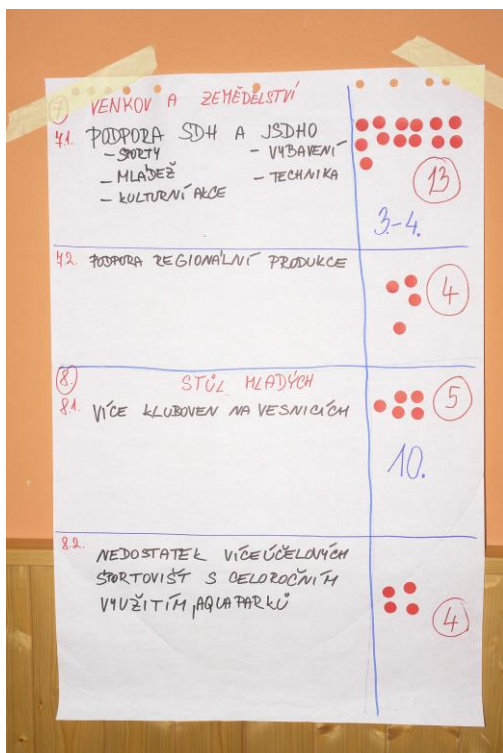 7. VENKOV A ZEMĚDĚLSTVÍ
7.1. PODPORA SDH A JSDHO
– SPORTY – VYBAVENÍ
– MLÁDEŽ – TECHNIKA
– KULTURNÍ AKCE
13
3.-4.
7.2. PODPORA REGIONÁLNÍ PRODUKCE
4
8. STŮL MLADÝCH
8.1. VÍCE KLUBOVEN NA VESNICÍCH
5
10.
8.2. NEDOSTATEK VÍCEÚČELOVÝCH
SPORTOVIŠŤ S CELOROČNÍM
VYUŽITÍM, AQUAPARKŮ
4